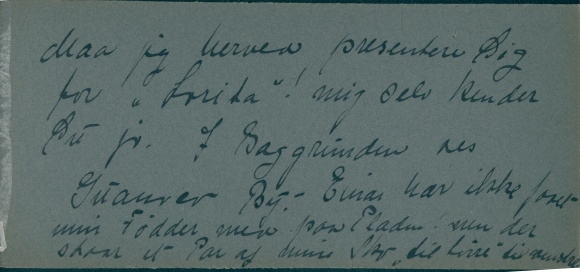 Maa jeg herved presentere Dig
for "Lorita"! mig selv kender
Du jo. I Baggrunden ses
By. - Einar har ikke faaet
mine Fødder med paa Pladen! men der
staar et Par af mine Sko, "til tørre" til venstre